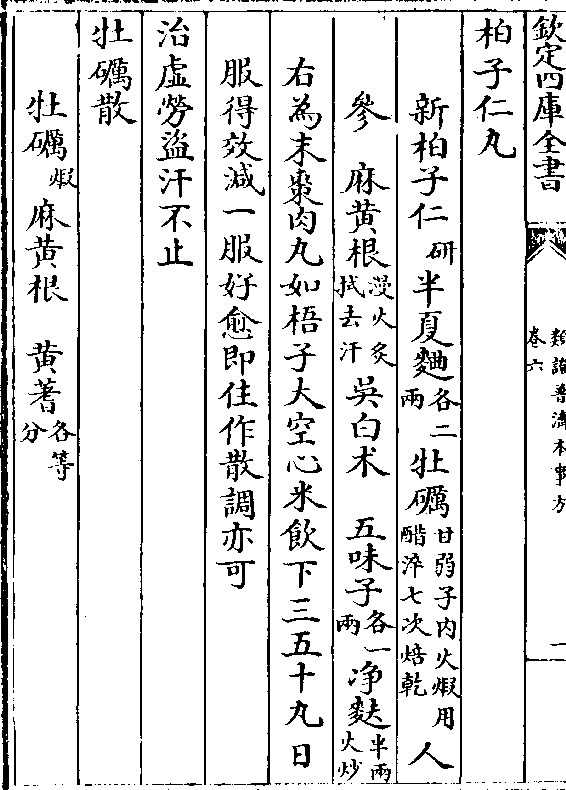 欽定四庫全書
類證普濟本事方
卷六
柏子仁丸
新柏子仁研半夏麯各二兩牡礪甘弱子内火煆用醋淬七次焙乾人
參 麻黄根漫火炙拭去汗吳白术 五味子各一兩净麩半兩火炒
右為末棗肉丸如梧子大空心米飲下三五十丸日
服得效減一服好愈即住作散調亦可
治虛勞盜汗不止
牡礪散
牡礪煆麻黄根 黄蓍各等分